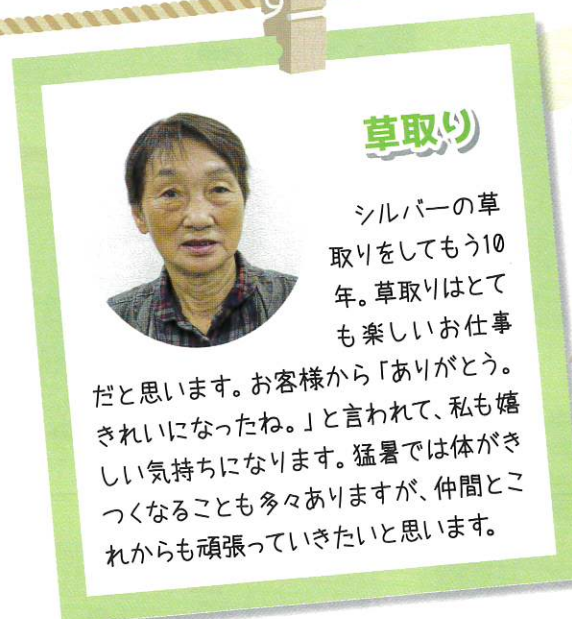 草取り
シルバーの草
取りをしてもう10
年。草取りはとて
も楽しいお仕事
だと思います。お客様から「ありがとう。
きれいになったね。」と言われて、私も嬉
しい気持ちになります。猛暑では体がき
つくなることも多々ありますが、仲間とこ
れからも頑張っていきたいと思います。